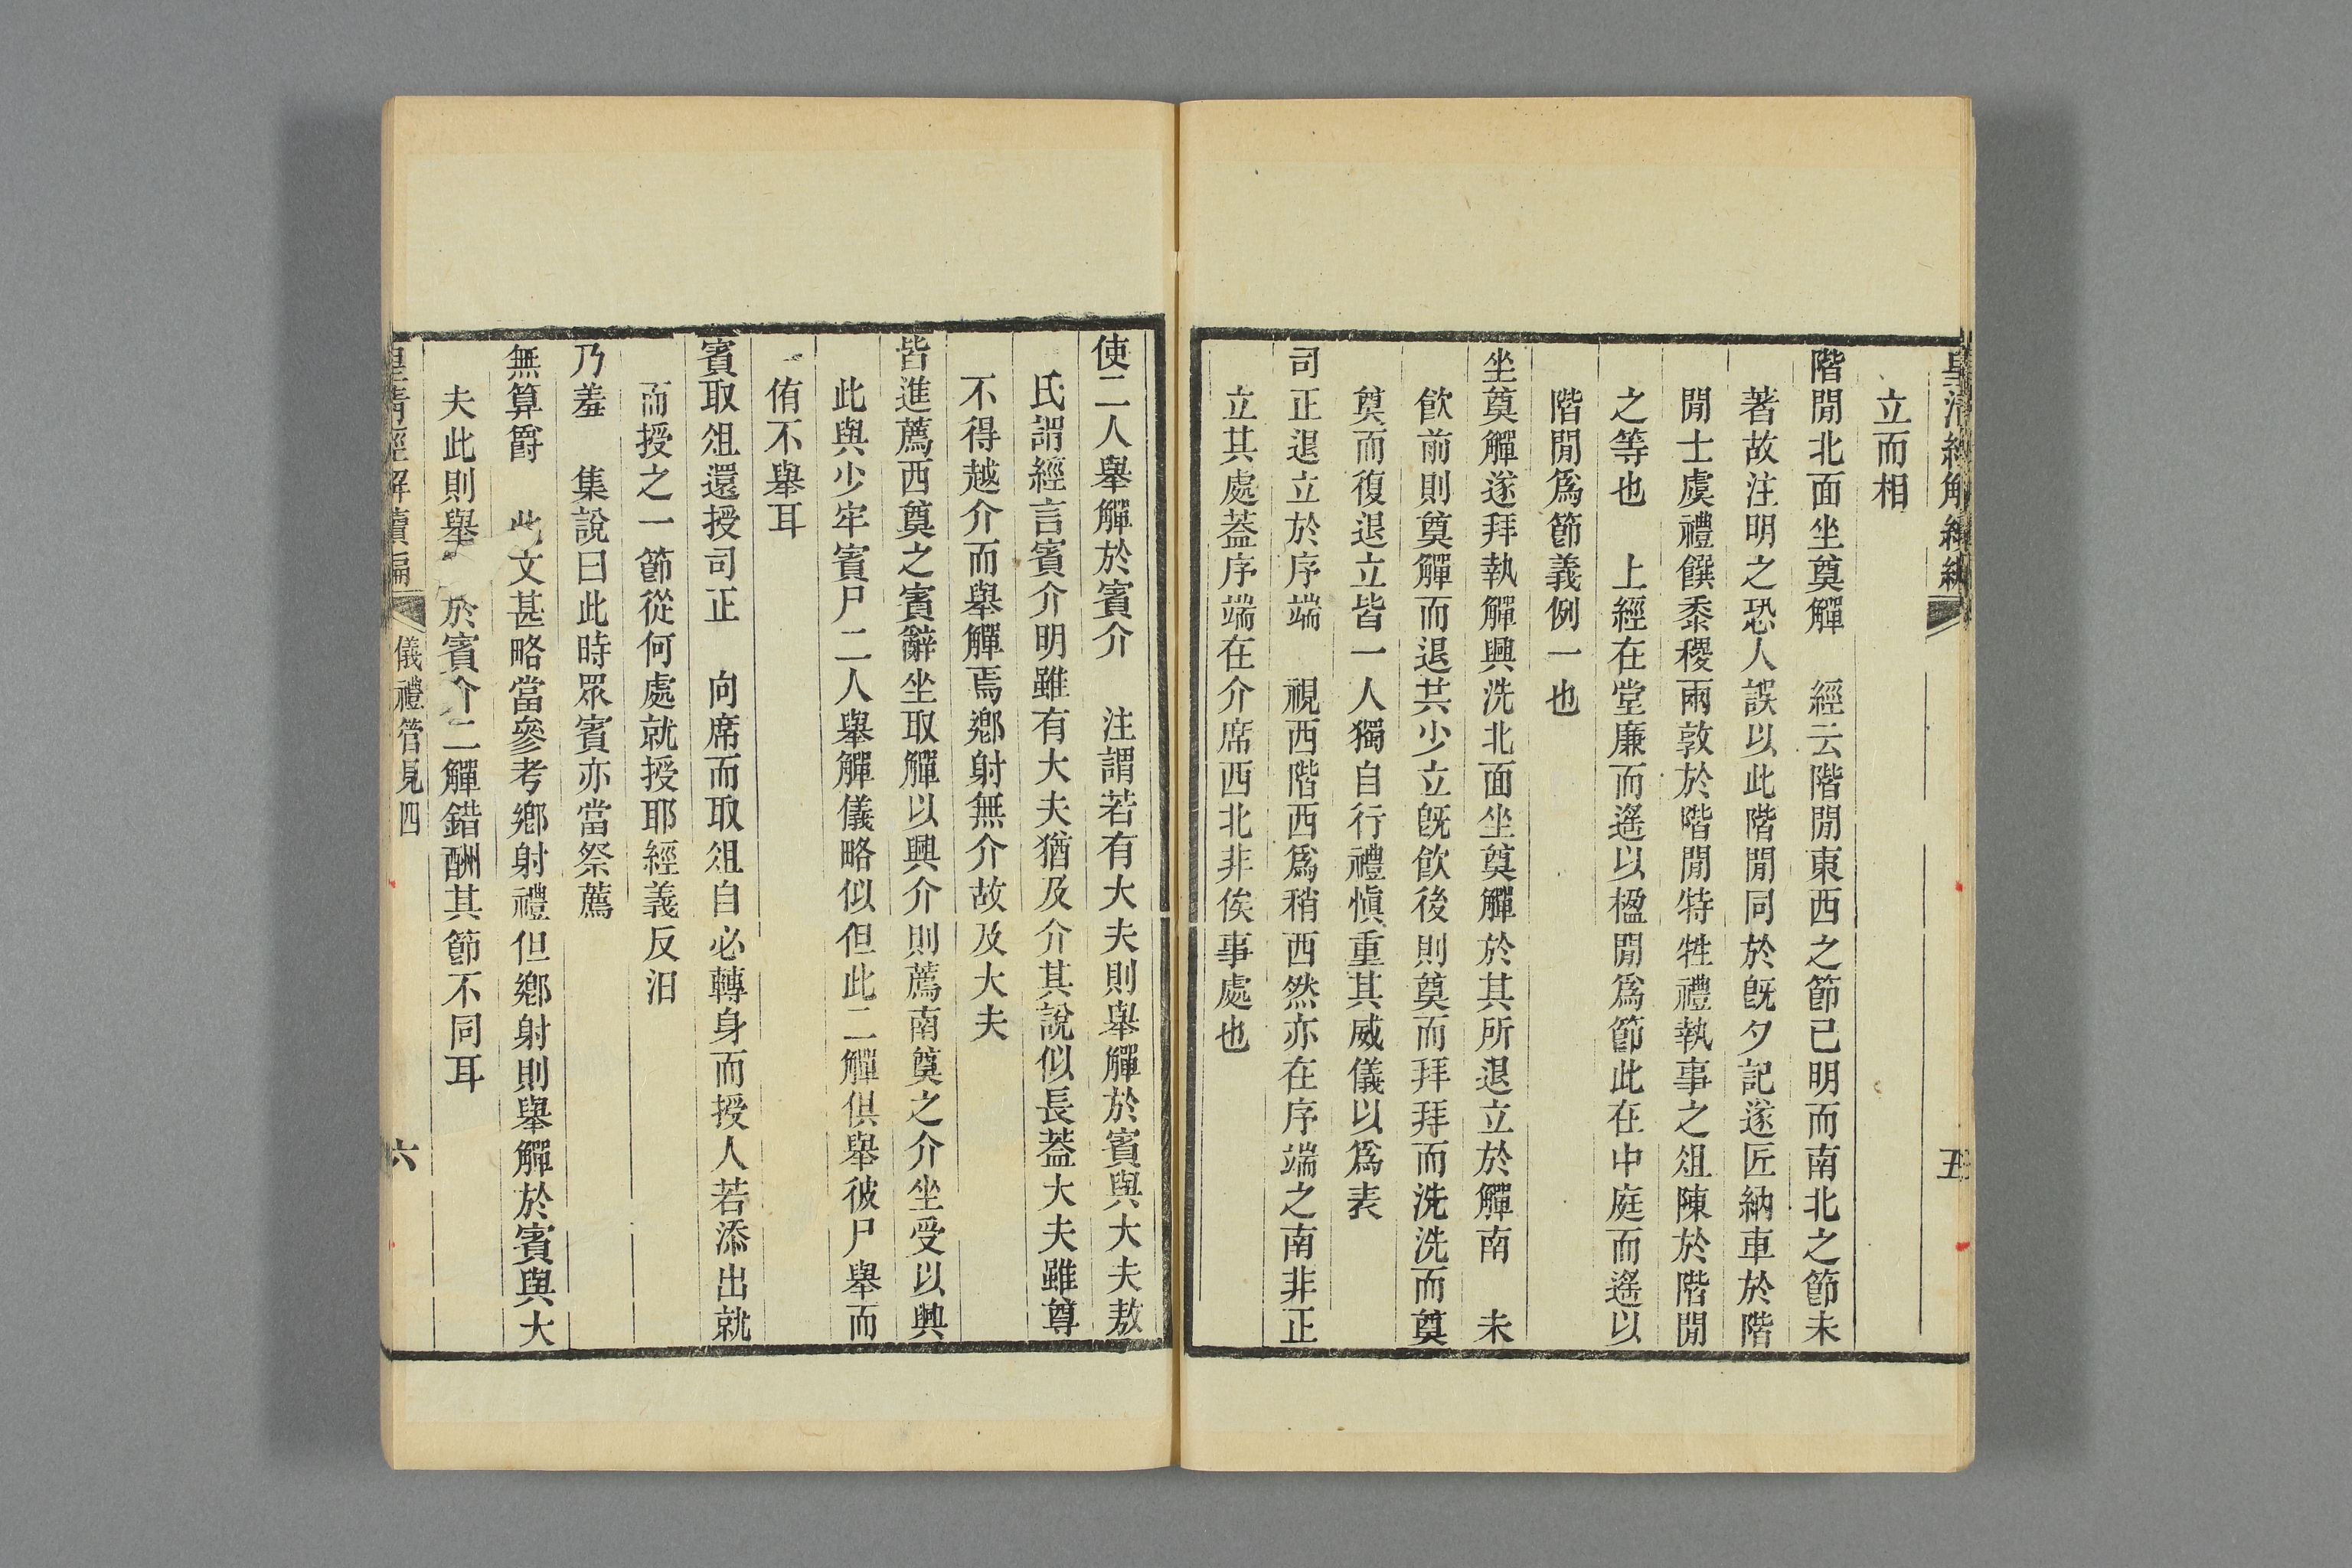 皇清經解續編
五
立而相
階閒北面坐奠觶　經云階閒東西之節已明而南北之節未
著故注明之恐人誤以此階閒同於旣夕記遂匠納車於階
閒士虞禮饌黍稷兩敦於階閒特牲禮執事之俎陳於階閒
之等也　上經在堂廉而遙以楹閒爲節此在中庭而遙以
階閒爲節義例一也
坐奠觶遂拜執觶興洗北面坐奠觶於其所退立於觶南　未
飮前則奠觶而退共少立旣飮後則奠而拜拜而洗洗而奠
奠而復退立皆一人獨自行禮愼重其威儀以爲表
司正退立於序端　視西階西爲稍西然亦在序端之南非正
立其處葢序端在介席西北非俟事處也
使二人舉觶於賓介　注謂若有大夫則舉觶於賓與大夫敖
氏謂經言賓介明雖有大夫猶及介其說似長葢大夫雖尊
不得越介而舉觶焉鄕射無介故及大夫
皆進薦西奠之賓辭坐取觶以興介則薦南奠之介坐受以興
此與少牢賓尸二人舉觶儀略似但此二觶俱舉彼尸舉而
侑不舉耳
賓取俎還授司正　向席而取俎自必轉身而授人若添出就
而授之一節從何處就授耶經義反汨
乃羞　集說曰此時眾賓亦當祭薦
無算爵　此文甚略當參考鄕射禮但鄕射則舉觶於賓與大
夫此則舉於賓介二觶錯酬其節不同耳
皇清經解續編
儀禮管見四
六